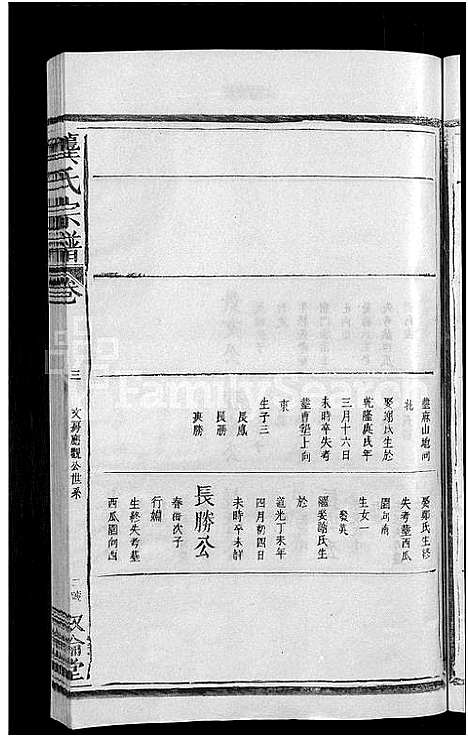 龔氏宗譜
卷
三
文房應觀公世系
敘倫堂
葬麻山地向
北
娶謝氏生於
乾隆庚戌年
三月十六日
未時卒失考
葬曹塱上向
東
生子三
長鳳
長勝
長勝公
娶鄭氏生終
失考葬西瓜
園向南
生女一
發英
繼娶謝氏生
於
道光丁未年
四月初四日
未時卒未詳
春衙次子
行繡
生終失考葬
西瓜園向西
FamilySearch